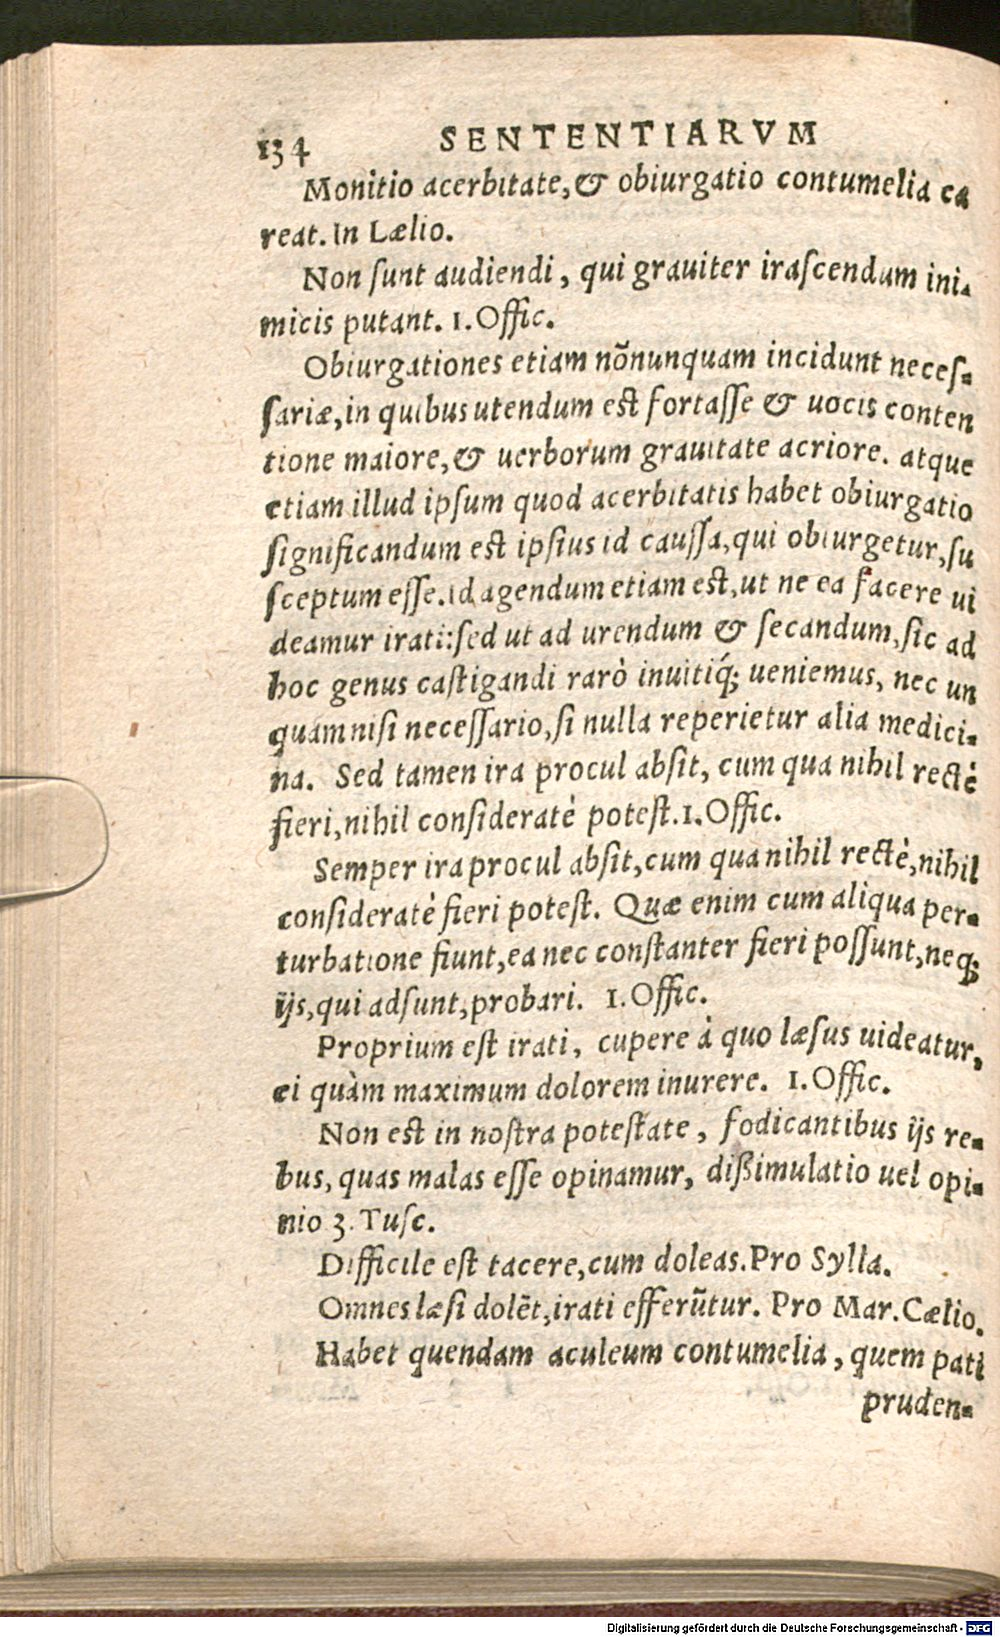 134 SENTENTIARVM
Monitio acerbitate, & obiurgatio contumelia ca
reat. In Lælio.
Non ſunt audiendi, qui grauiter iraſcendum ini-
micis putant. 1. Offic.
Obiurgationes etiam nōnunquam incidunt neceſ-
ſariæ, in quibus utendum eſt fortaſſe & uocis conten
tione maiore, & uerborum grauitate acriore. atque
etiam illud ipſum quod acerbitatis habet obiurgatio
ſignificandum eſt ipſius id cauſſa, qui obiurgetur, ſu
ſceptum eſſe. id agendum etiam eſt, ut ne ea facere ui
deamur irati: ſed ut ad urendum & ſecandum, ſic ad
hoc genus caſtigandi rarò inuitiq́; ueniemus, nec un
quam niſi neceſſario, ſi nulla reperietur alia medici-
na. Sed tamen ira procul abſit, cum qua nihil rectè
fieri, nihil conſideratè poteſt. 1. Offic.
Semper ira procul abſit, cum qua nihil rectè, nihil
conſideratè fieri poteſt. Quæ enim cum aliqua per-
turbatione fiunt, ea nec conſtanter fieri poſſunt, neq;
ijs, qui adſunt, probari. 1. Offic.
Proprium eſt irati, cupere à quo læſus uideatur,
ei quàm maximum dolorem inurere. 1. Offic.
Non eſt in noſtra poteſtate, fodicantibus ijs re-
bus, quas malas eſſe opinamur, dißimulatio uel opi-
nio 3. Tuſc.
Difficile eſt tacere, cum doleas. Pro Sylla.
Omnes læſi dolēt, irati efferūtur. Pro Mar. Cælio.
Habet quendam aculeum contumelia, quem pati
pruden-
Digitalisierung gefördert durch die Deutsche Forschungsgemeinschaft - DFG